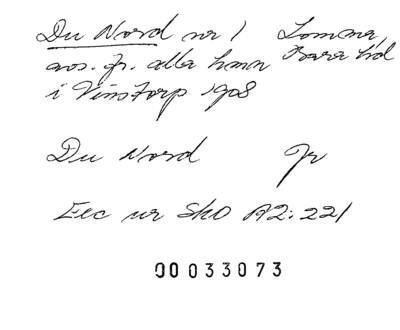 Du Nord nr 1 Lomma,
avs. fr. alla hmn Bara hd
i Vinstorp 1908
Du Nord Jr
Eec ur SkO A2: 221
00033073